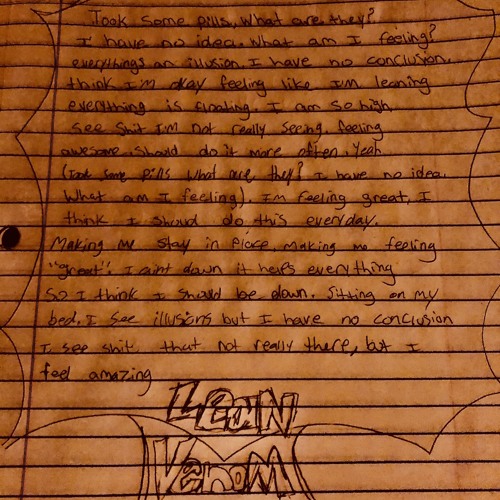 Took some pills, What are they?
I have no idea. What am I feeling?
everything's an illusion. I have no conclusion.
think I'm okay feeling like I'm leaning
everything is floating. I am so high,
see shit I'm not really seeing. feeling
awesome. Should do it more often. Yeah
(Took some pills what are they? I have no idea.
What am I feeling). I'm feeling great, I
think I should do this everyday.
Making me stay in place, making me feeling
"great". I aint down it helps everything
So I think I should be down. Sitting on my
bed. I see illusions but I have no conclusion
I see shit that not really there, but I
feel amazing
LEAN
VENOM